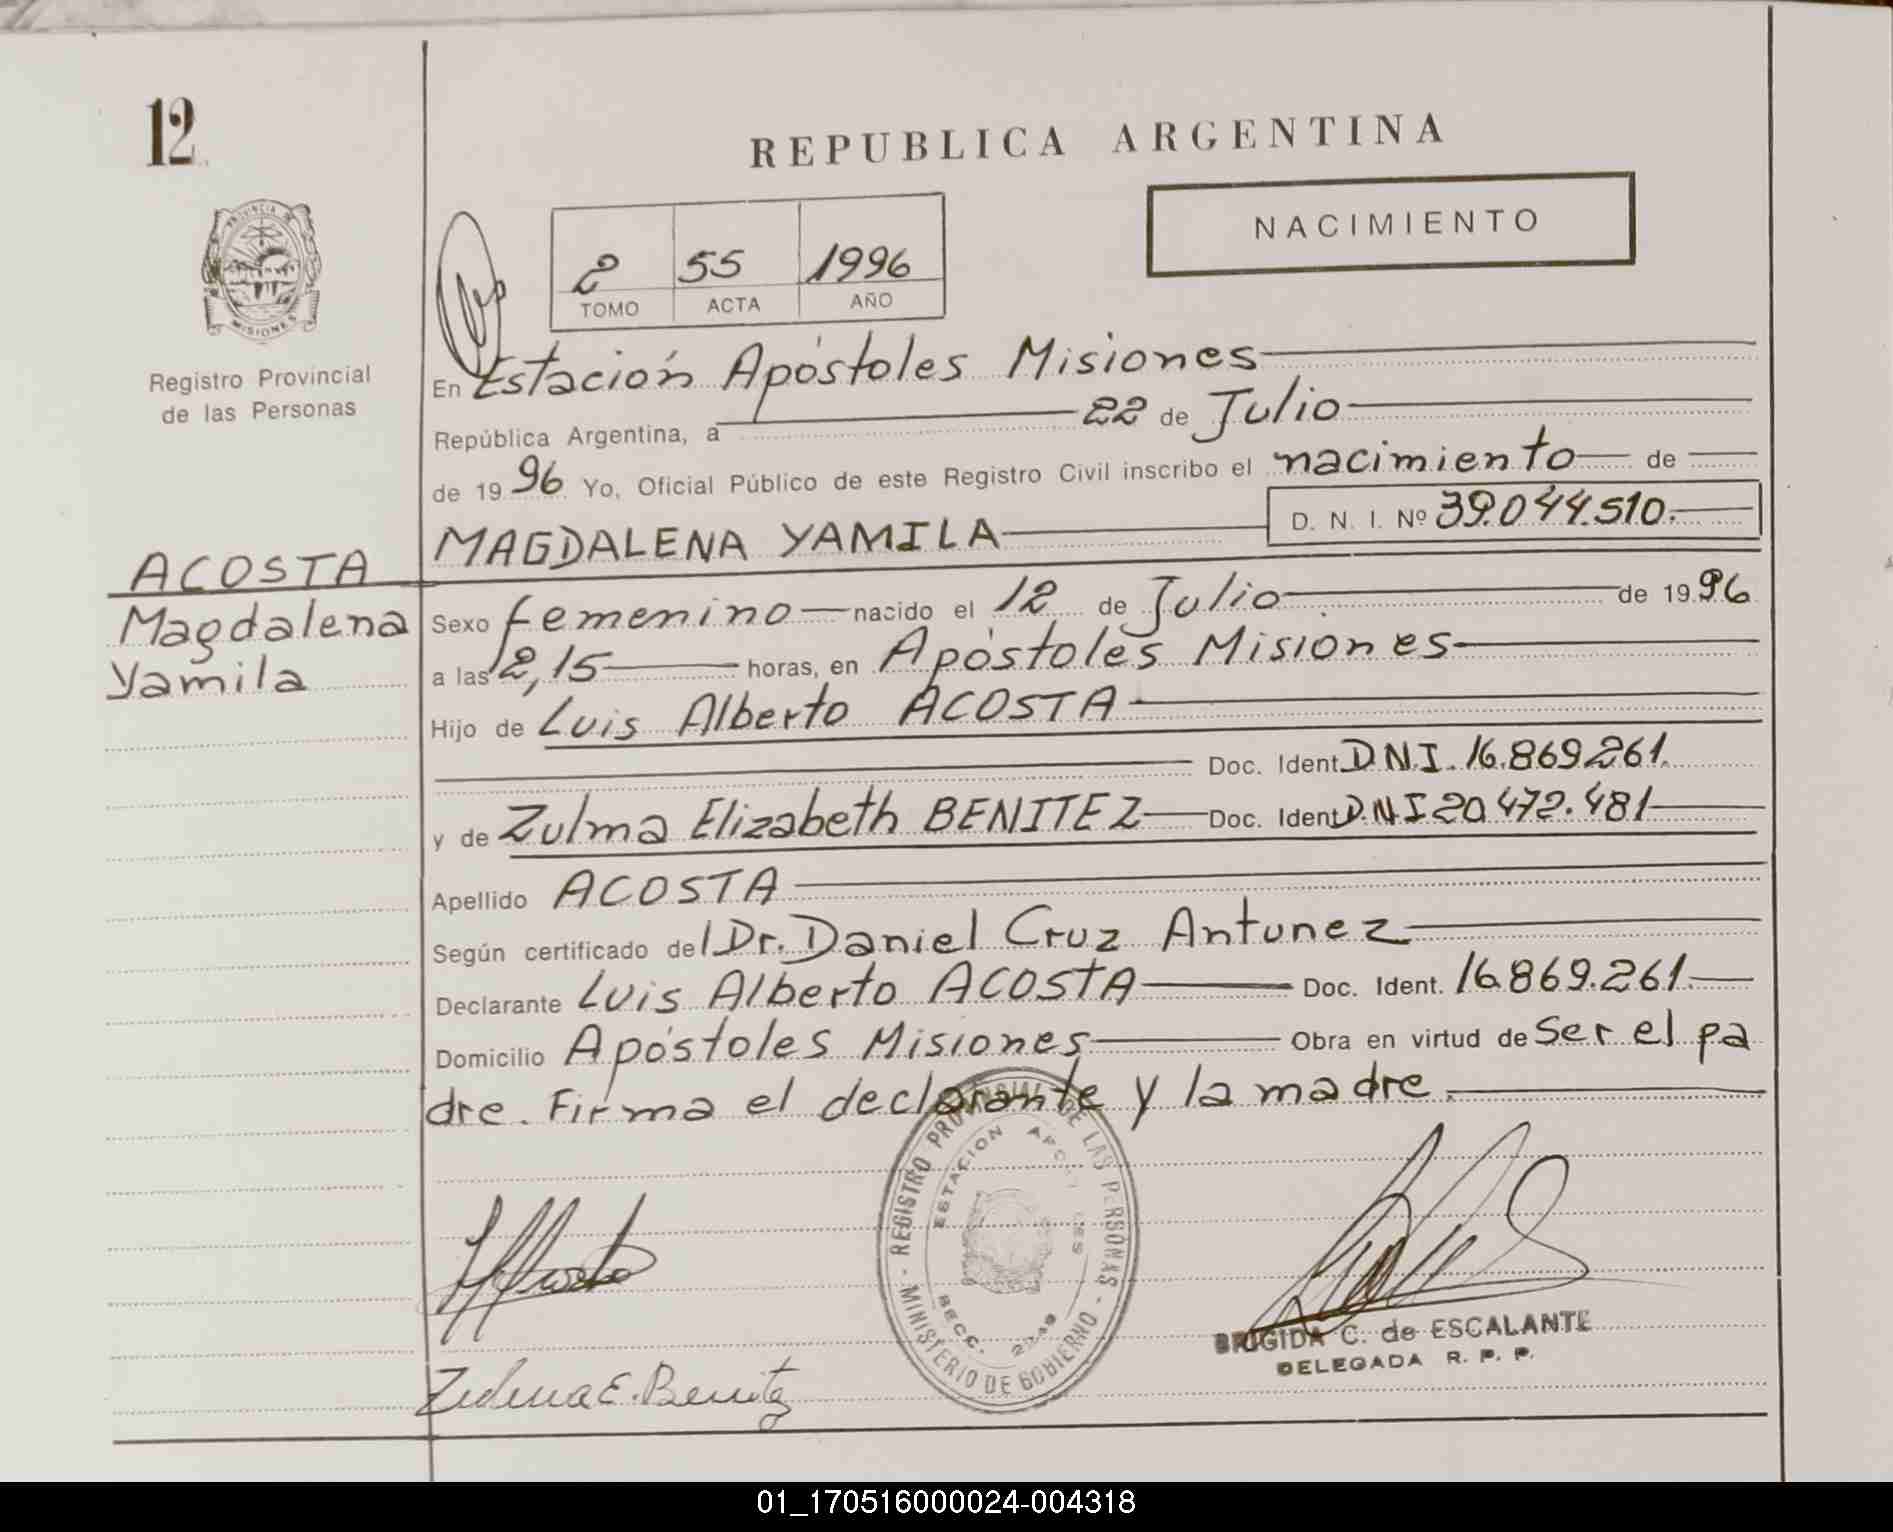 12
REPUBLICA ARGENTINA
NACIMIENTO
PROVINCIA DE
MISIONES
Registro Provincial
de las Personas
2 55 1996
TOMO ACTA AÑO
En Estación Apóstoles Misiones
República Argentina, a 22 de Julio
de 1996 Yo, Oficial Público de este Registro Civil inscribo el nacimiento de
MAGDALENA YAMILA D. N. I. Nº 39.044.510.
ACOSTA
Magdalena
Yamila
Sexo femenino nacido el 12 de Julio de 1996
a las 12,15 horas, en Apóstoles Misiones
Hijo de Luis Alberto ACOSTA
Doc. Ident. D.N.I. 16.869.261.
y de Zulma Elizabeth BENITEZ Doc. Ident. D.N.I 20.472.481
Apellido ACOSTA
Según certificado del Dr. Daniel Cruz Antunez
Declarante Luis Alberto ACOSTA Doc. Ident. 16.869.261.
Domicilio Apóstoles Misiones Obra en virtud de Ser el pa
dre. Firma el declarante y la madre.
REGISTRO PROVINCIAL DE LAS PERSONAS - MINISTERIO DE GOBIERNO -
ESTACION APOSTOLES
SECC.
Zulma E. Benitez
BRIGIDA C. de ESCALANTE
DELEGADA R. P. P.
01_170516000024-004318